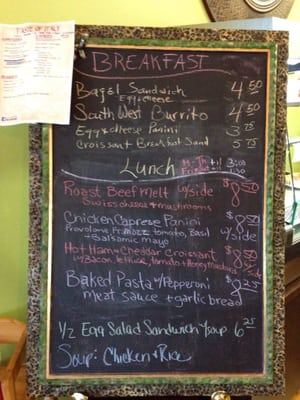 BREAKFAST
Bagel Sandwich 4 50
Egg & cheese
South West Burrito 4 50
Egg & cheese Panini 3 75
Croissant Breakfast Sand 5 75
Lunch M-Th til 3:00
Roast Beef Melt w/side $8.50
Swiss cheese & mushrooms
Chicken Caprese Panini $8.50
Provolone, Fr. Mozz, tomato, Basil w/side
& Balsamic mayo
Hot Ham & Cheddar Croissant $8.50
w/Bacon, lettuce, tomato & Honey Mustard w/side
Baked Pasta w/Pepperoni $8.25
meat sauce & garlic bread
1/2 Egg Salad Sandwich & soup 6 25
Soup: Chicken & Rice